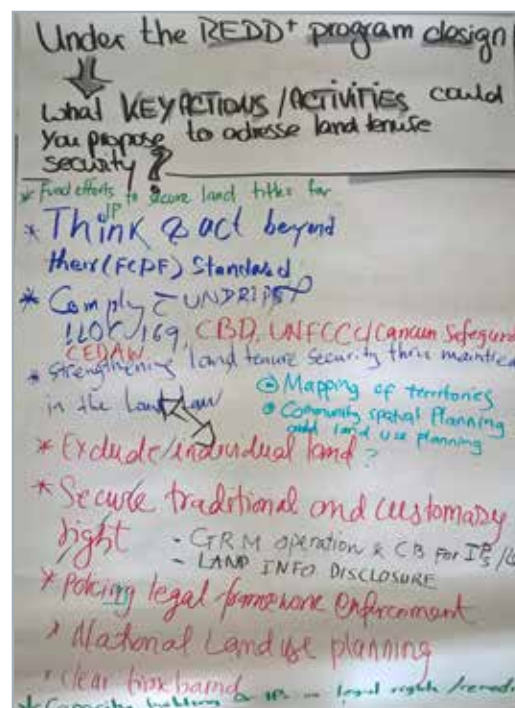 Under the REDD+ program design
What KEY ACTIONS / ACTIVITIES could
you propose to adresse land tenuse
security ?
* Fund efforts to secure land titles for
IP
* Think & act beyond
their (FCPF) Standard
* Comply c̄ UNDRIP
ILOC 169, CBD, UNFCCC/Cancun Safeguard
CEDAW
* Strengthening land tenure security thru
in the land law
Mapping of territories
Community spatial Planning
and land use planning
* Exclude/individual land ?
* Secure traditional and customary
right
- GRM operation & CB for IPs /
- LAND INFO DISCLOSURE
* legal framework enforcement
* National Land use planning
* Clear
* Capacity building IPs legal rights